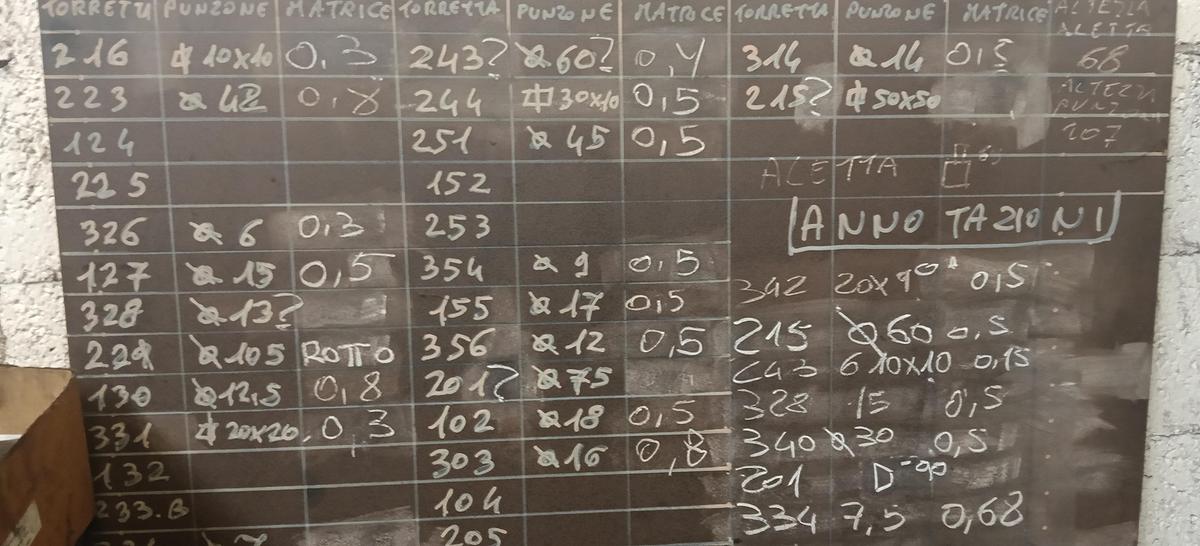 TORRETTA PUNZONE MATRICE TORRETTA PUNZONE MATRICE TORRETTA PUNZONE MATRICE ALTEZZA ALETTA
216 10x10 0,3 243? ⌀60? 0,4 314 ⌀14 0,5 68
223 ⌀42 0,8 244 30x10 0,5 215? 50x50 ALTEZZA
124 251 ⌀45 0,5 207
ALETTA
225 152
ANNOTAZIONI
326 ⌀6 0,3 253
127 ⌀15 0,5 354 ⌀9 0,5 342 20x9 0,5
328 ⌀13? 155 ⌀17 0,5 215 ⌀60 0,5
229 ⌀105 ROTTO 356 ⌀12 0,5 243 6 10x10 0,15
130 ⌀12,5 0,8 201? ⌀75 328 15 0,5
331 20x20 0,3 102 ⌀18 0,5 340 ⌀30 0,5
132 303 ⌀16 0,8 201
233.B 104 334 7,5 0,68
205